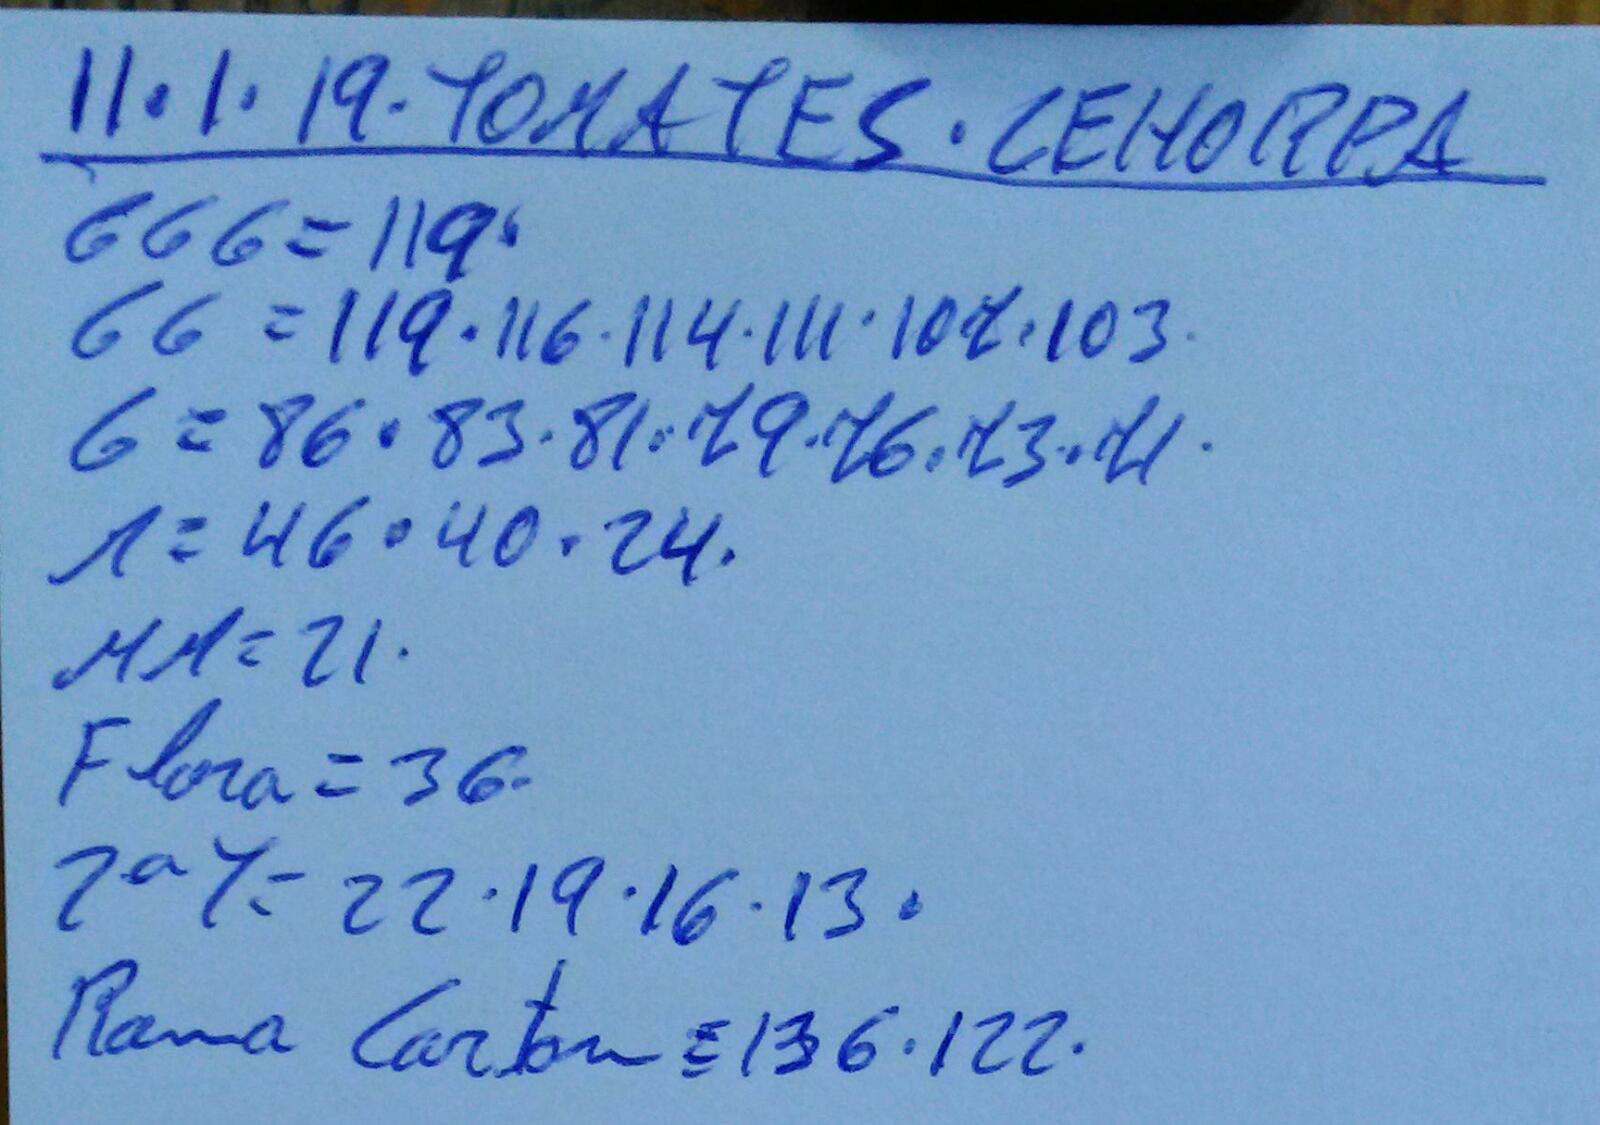 11.1.19.TOMATES.CEHORPA
GGG=119.
GG=119.116.114.111.107.103.
G=86.83.81.79.76.73.71.
M=46.40.24.
MM=21.
Flora=36.
2ªY=22.19.16.13.
Rama Carton=136.122.